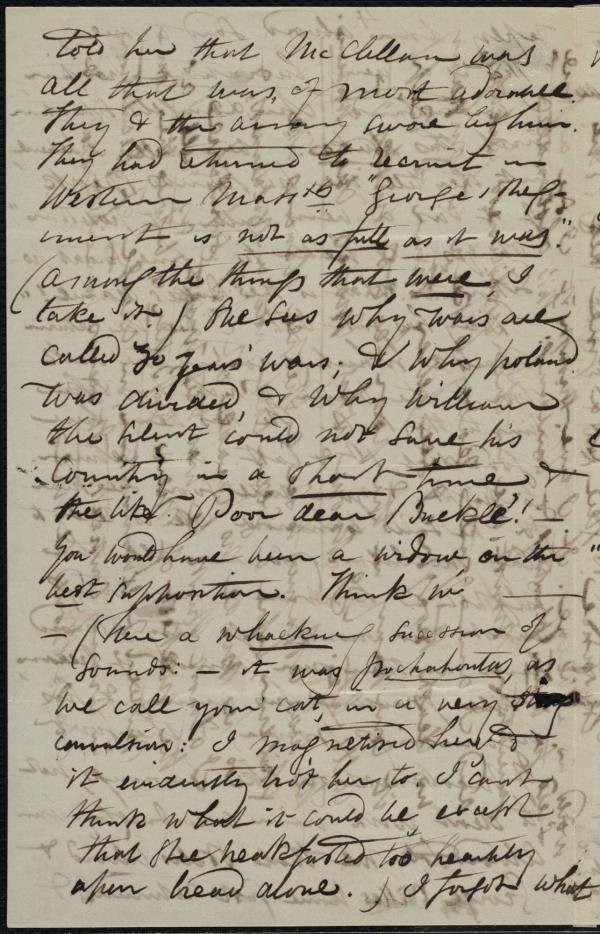 told her that McClellan was
all that was, of most adorable.
They & the army swore by him.
They had returned to recruit in
Western Masstts "George's Reg-
iment is not as full as it was."
(among the things that were, I
take it.) She sees why wars are
called 30 years' wars; & why poland
was divided, & why William
the silent could not save his
Country in a short time &
the like. Poor dear Buckle'! —
You would have been a widow, on the
best supposition. Think we ——
— (Here a whacking sucession of
sounds: — it was Pochahontas, as
we call your cat, in a very
convulsion: I magnetised her &
it evidently bro't her to. I can't
think what it could be except
that she breakfasted too heartily
upon bread alone.) I forgot what